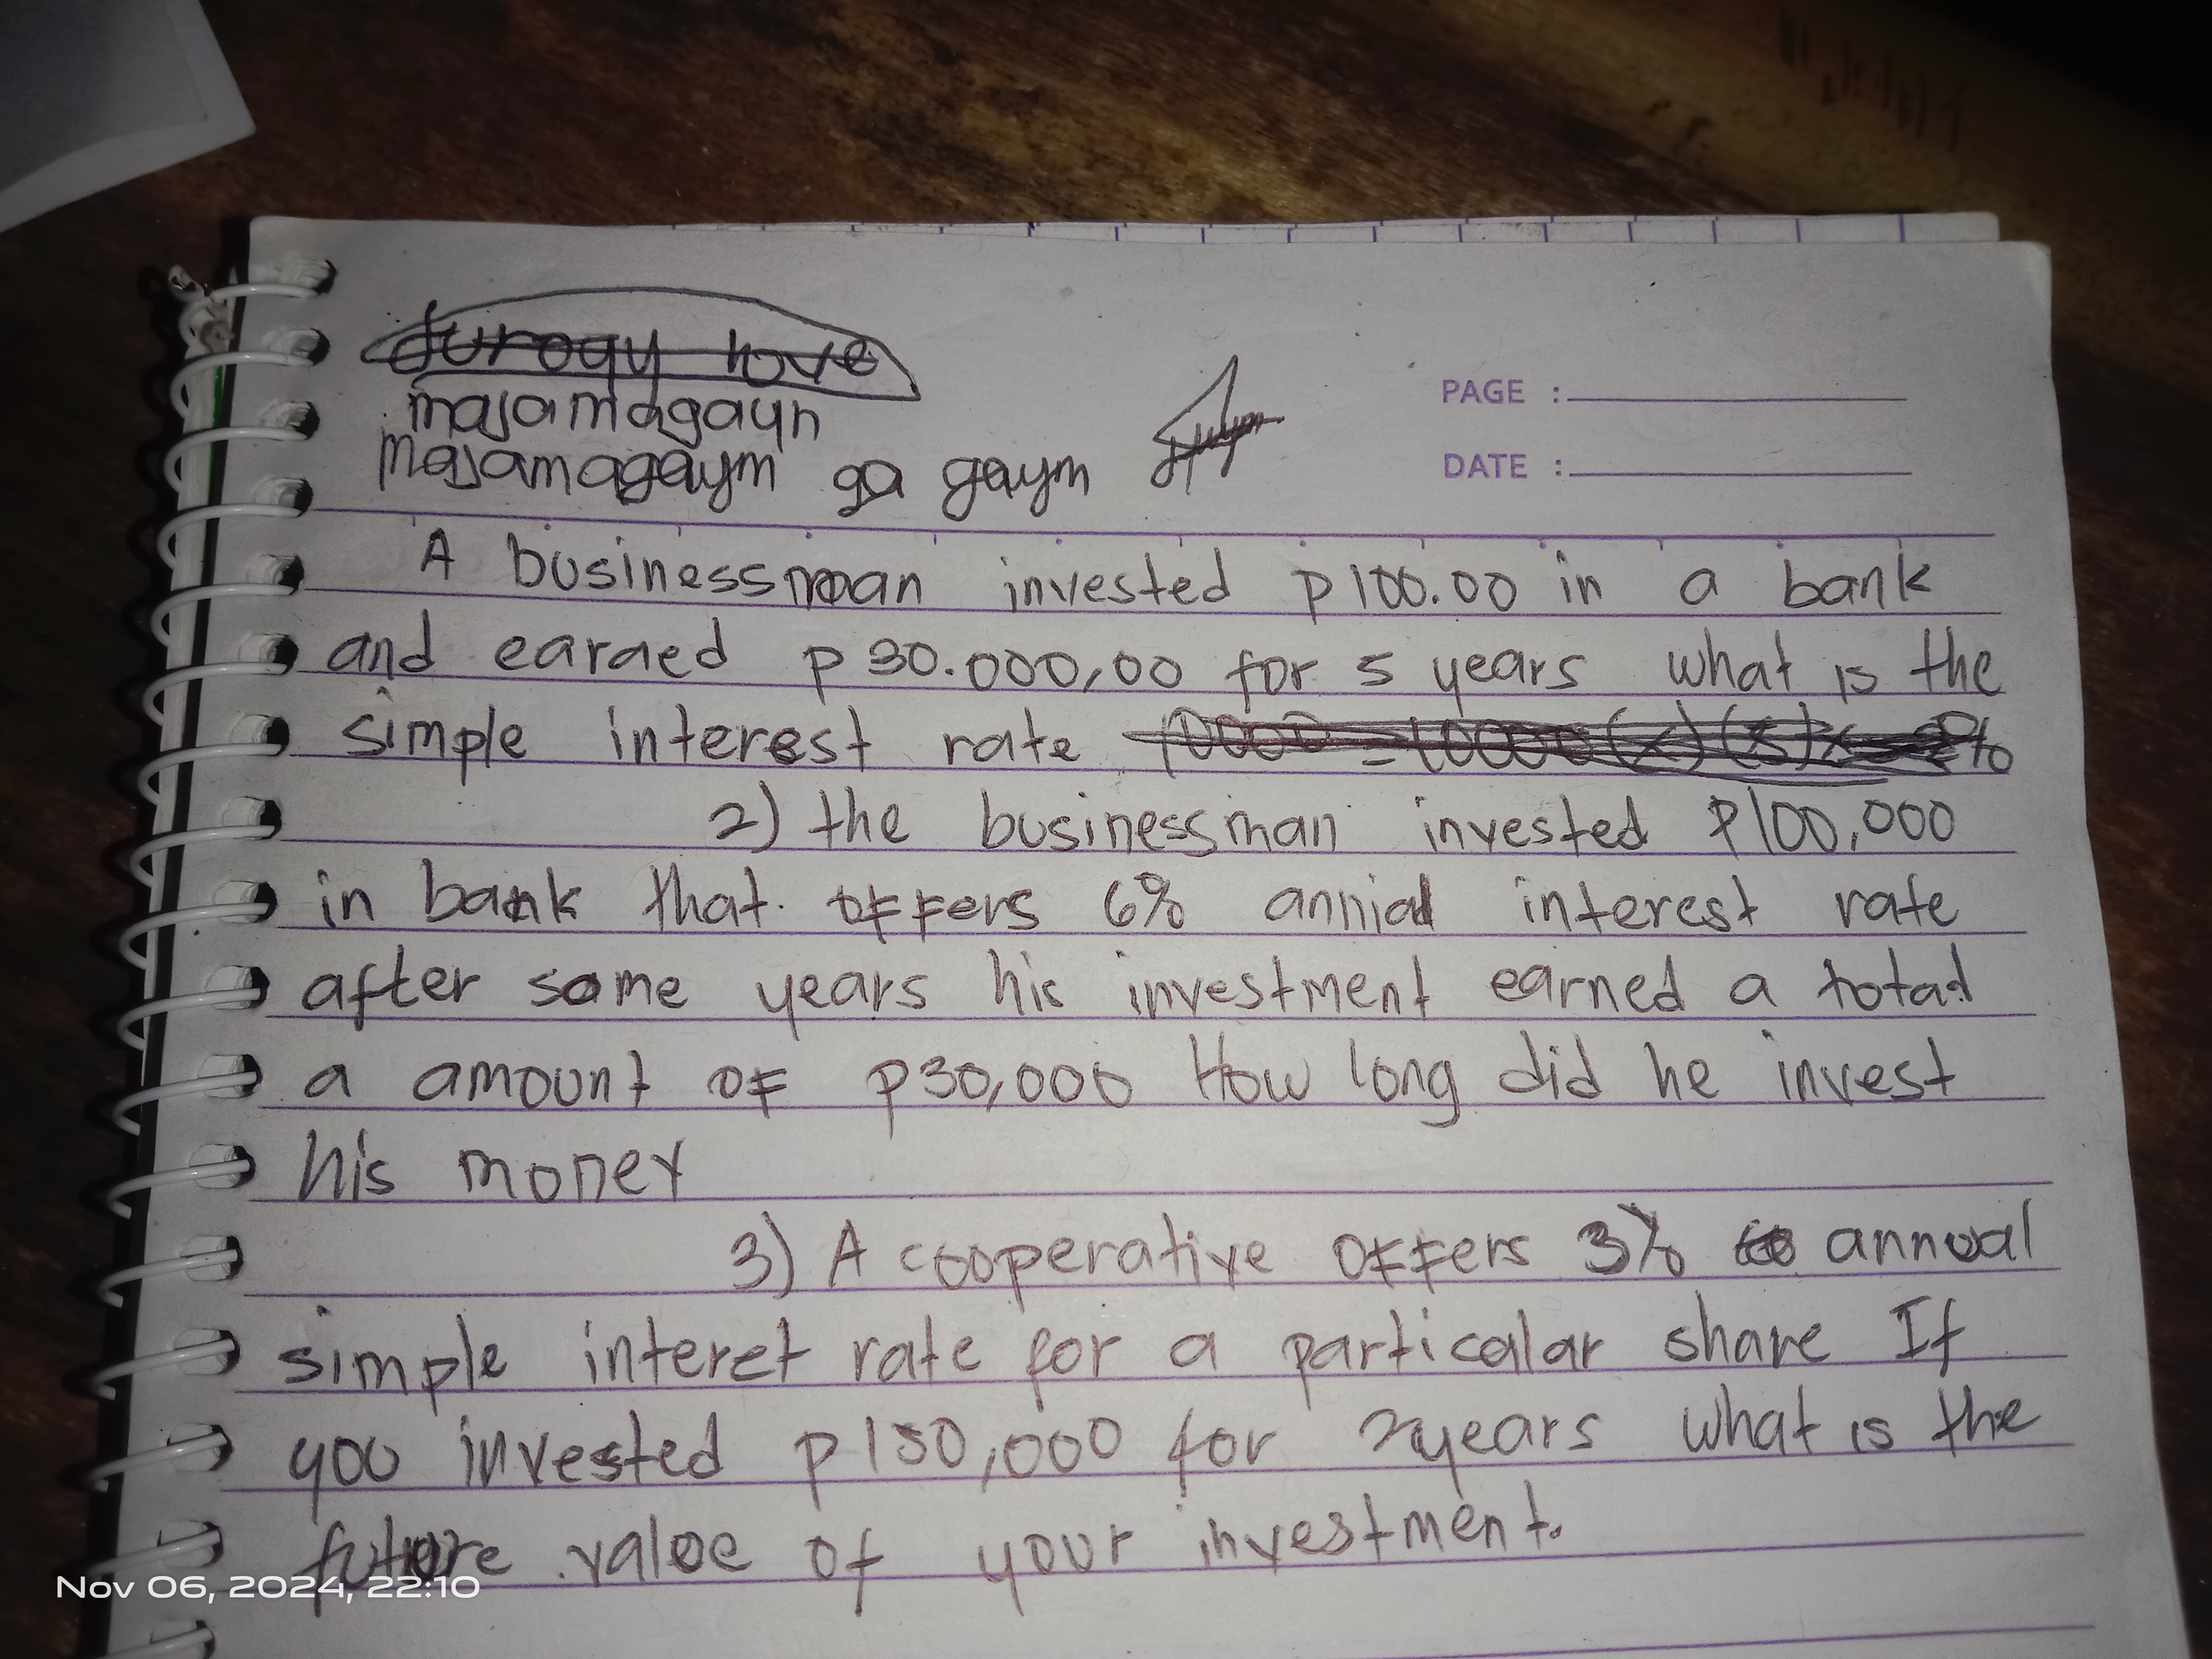 majamagayn
majamagaym ga gaym
PAGE :
DATE :
A businessman invested P100.00 in a bank
and earaed P30.000,00 for 5 years what is the
simple interest rate
2) the businessman invested ₱100,000
in bank that. offers 6% annial interest rate
after some years his investment earned a total
a amount of P30,000 How long did he invest
his money
3) A cooperative offers 3% annual
simple interet rate for a particalar share If
you invested P150,000 for 2years what is the
future value of your investment.
Nov 06, 2024, 22:10